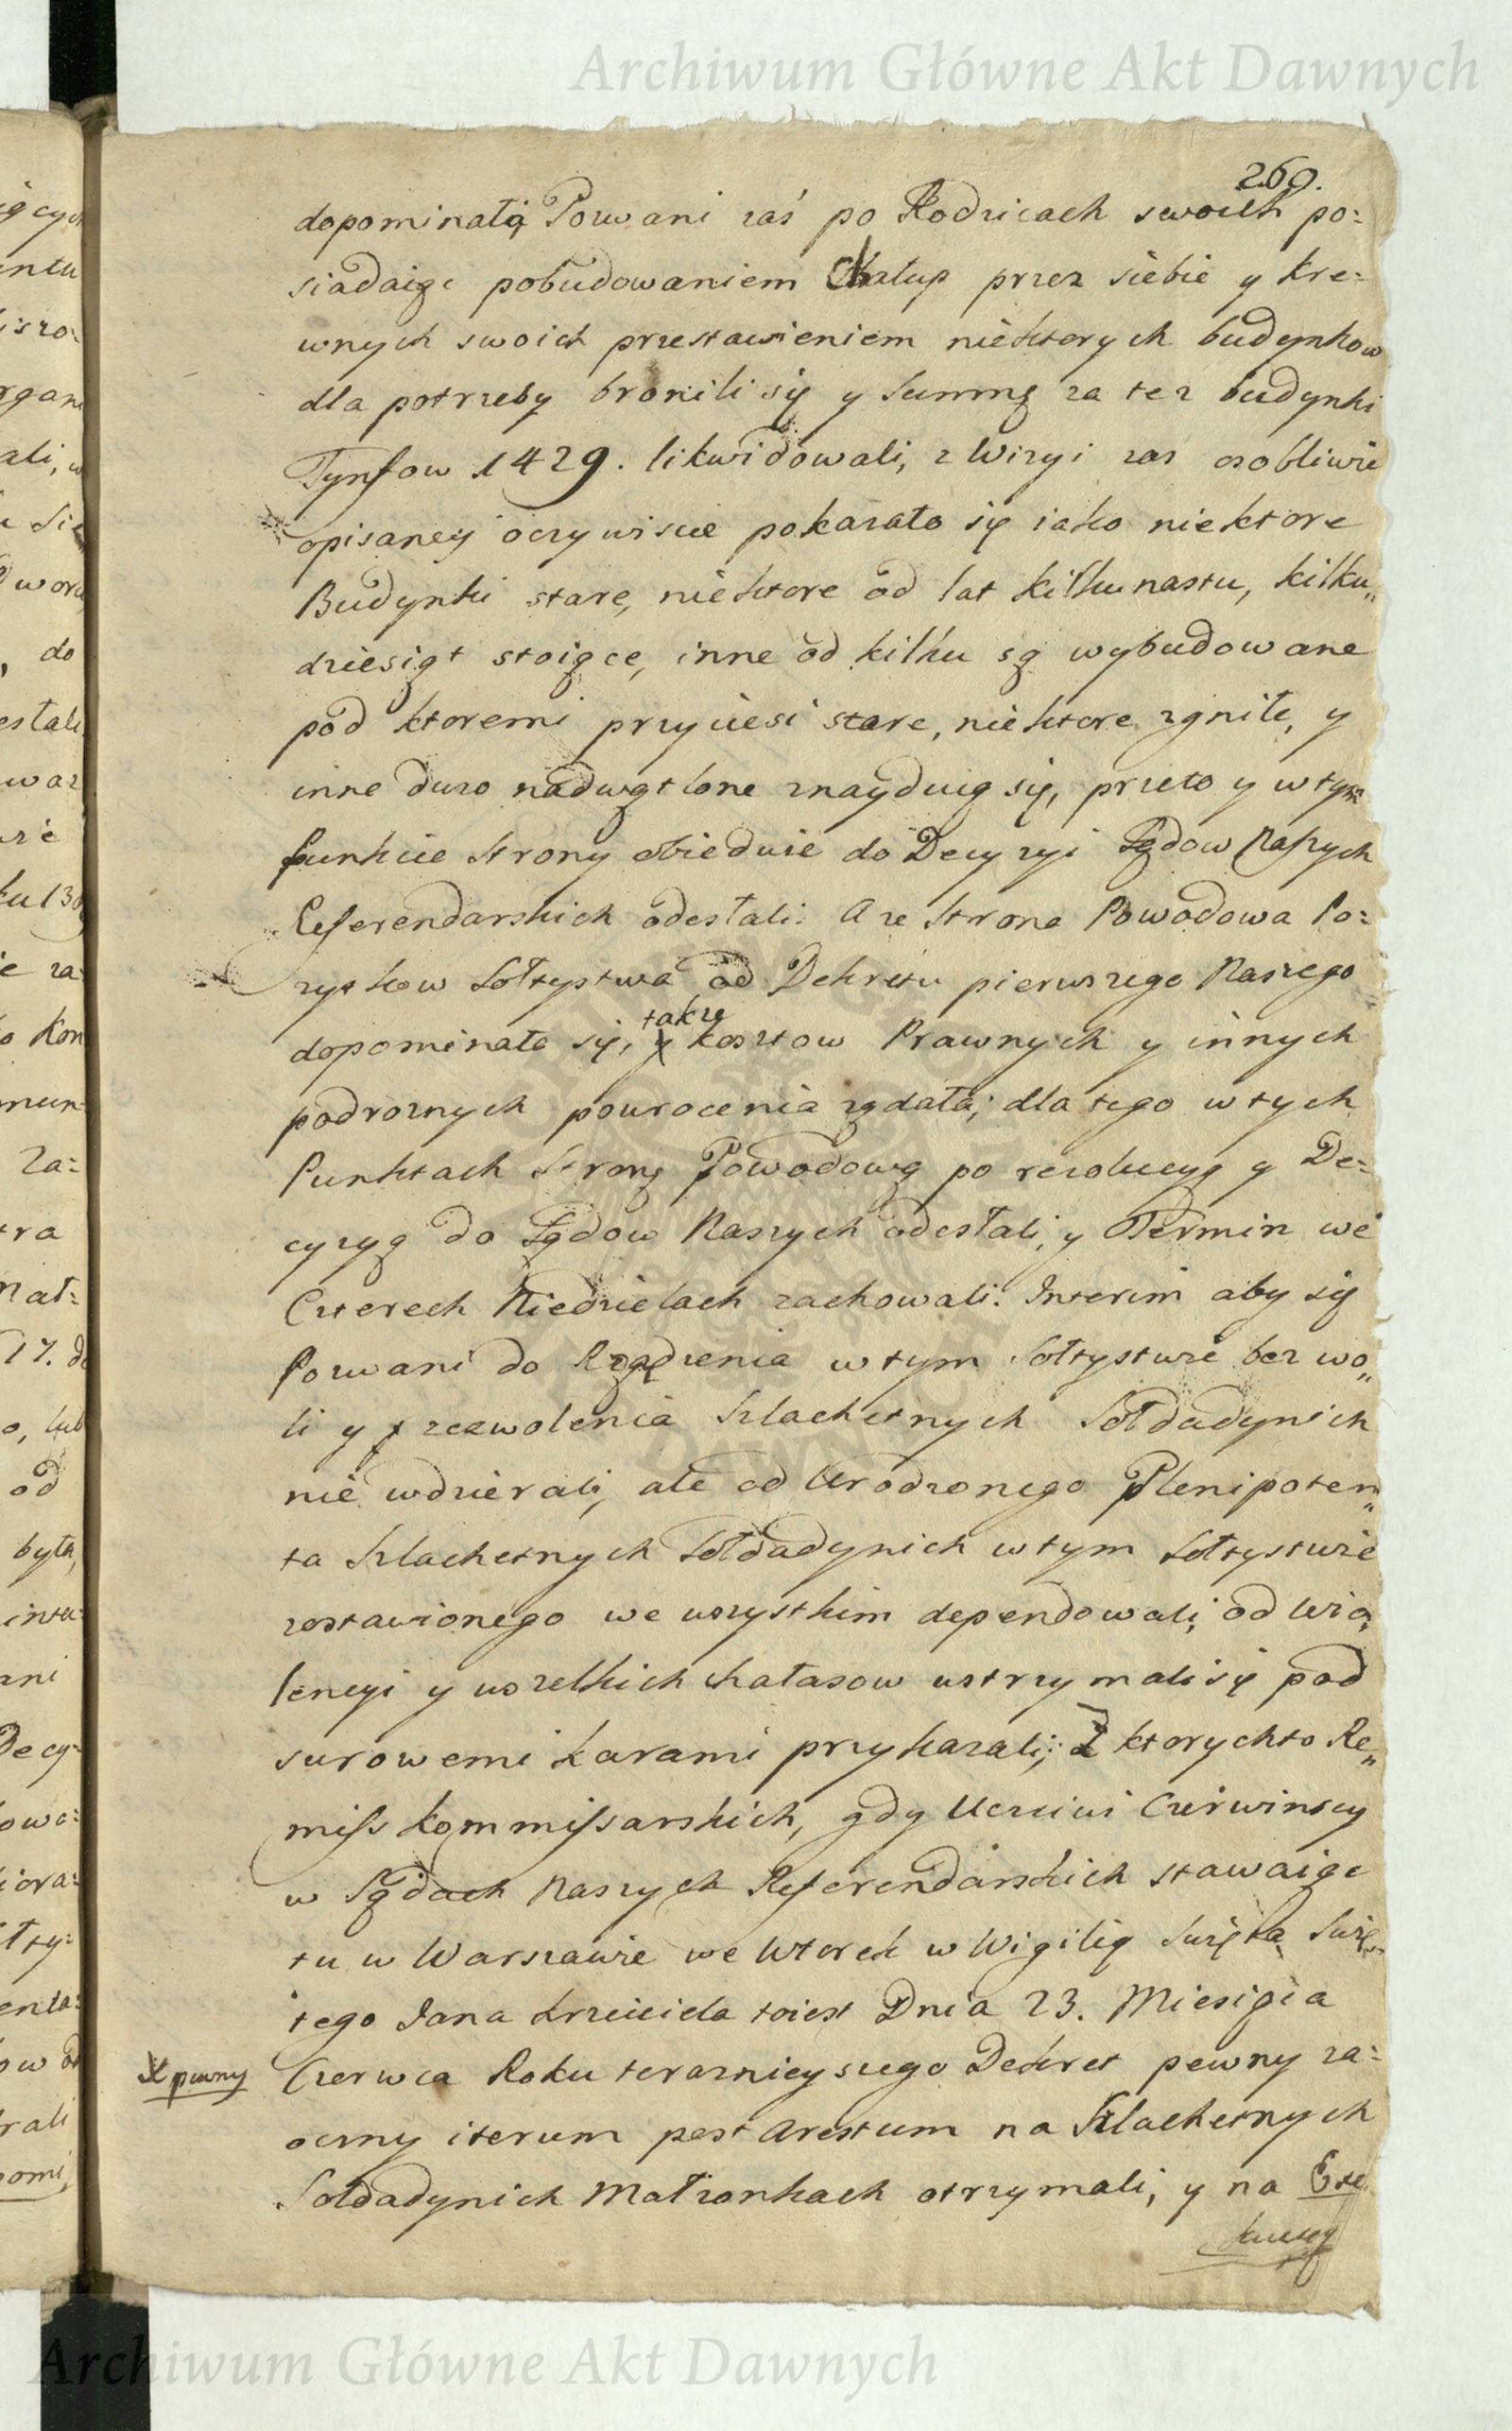 Archiwum Główne Akt Dawnych
269.
dopominała, Pozwani zaś po Rodzicach swoich po:
siadaiąc pobudowaniem Chałup przez siebie y kre:
wnych swoich przestawieniem niektorych budynkow
dla potrzeby bronili się y Summę za tez budynki
Tynfow 1429. likwidowali, z Wizyi zas osobliwie
opisaney oczywiscie pokazało się iako niektore
Budynki stare, niektore od lat kilkunastu, kilku„
dziesiąt stoiące, inne od kilku są wybudowane
pod ktoremi przyciesi stare, niektore zgniłe, y
inne duzo nadwątlone znayduią się, przeto y w tym
punkcie Strony obiedwie do Decyzyi Sądow Naszych
Referendarskich odesłali: A ze Strona Powodowa Po:
zytkow Sołtystwa od Dekretu pierwszego Naszego
dopominała się, takze kosztow Prawnych y innych
podroznych powrocenia ządała; dla tego w tych
Punktach Stronę Powodową po rezolucyą y De:
cyzyą do Sądow Naszych odesłali, y Termin we
Czterech Niedzielach zachowali. Interim aby się
Pozwani do Rządzenia w tym Sołtystwie bez wo„
li y zezwolenia Szlachetnych Sołdadynich
nie wdzierali, ale od Urodzonego Plenipoten„
ta Szlachetnych Sołdadynich w tym Sołtystwie
zostawionego we wszystkim dependowali, od Wio„
lencyi y wszelkich hałasow wstrzymali się pod
surowemi karami przykazali; Z ktorychto Re„
miss kommissarskich, gdy Uczciwi Czerwinscy
w Sądach Naszych Referendarskich stawaiąc
tu w Warszawie we Wtorek w Wigilią Swięta Swię„
tego Jana Krzciciela toiest Dnia 23. Miesiąca
X pewny
Czerwca Roku teraznieyszego Dekret pewny za:
oczny iterum post Arestum na Szlachetnych
Sołdadynich Małzonkach otrzymali, y na Exe
kucyą
Archiwum Główne Akt Dawnych